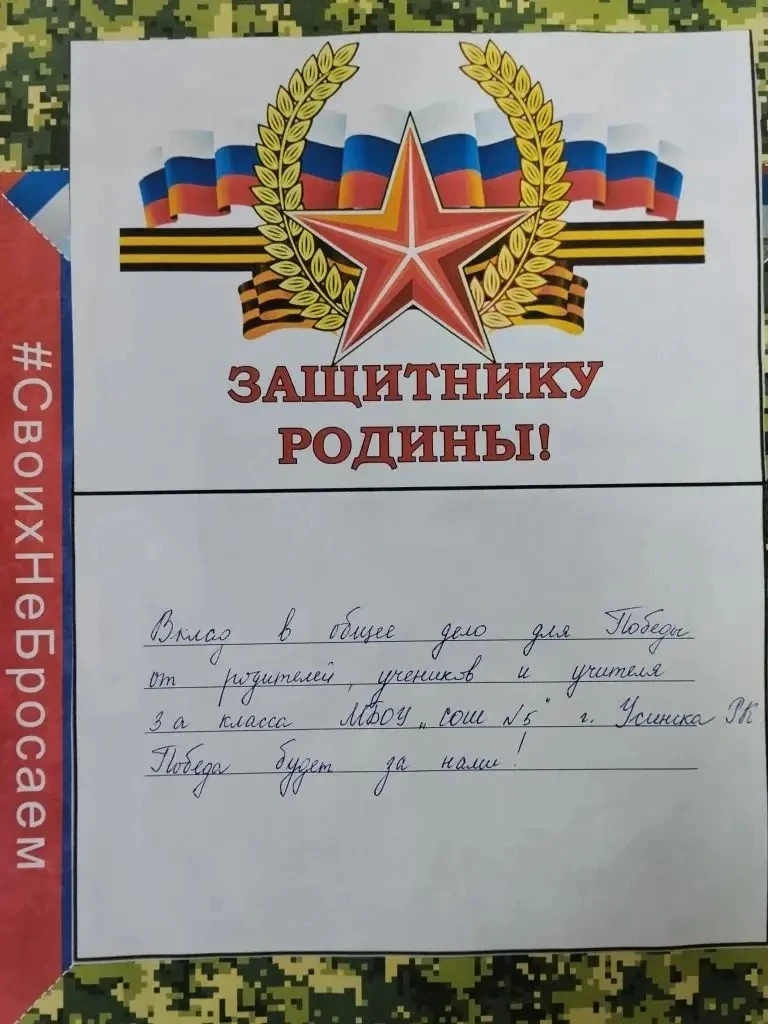 ЗАЩИТНИКУ
РОДИНЫ!
#СвоихНеБросаем
Вклад в общее дело для Победы
от родителей, учеников и учителя
3а класса МБОУ „СОШ №5" г. Усинска РК
Победа будет за нами!